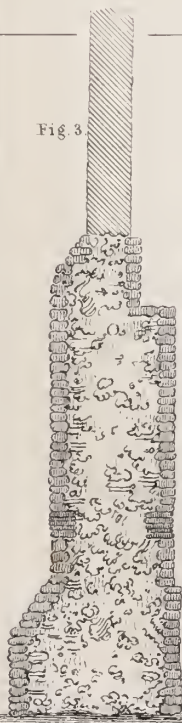 Fig. 3.